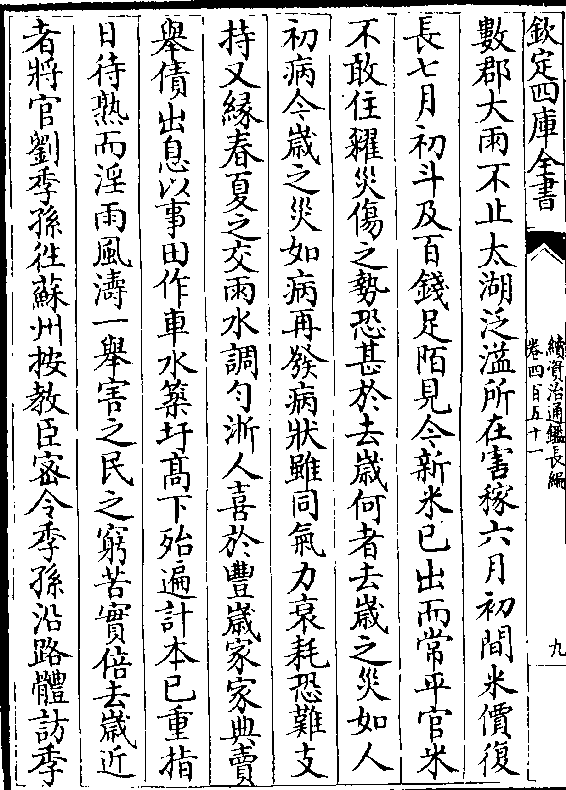 欽定四庫全書
續資治通鑑長編
卷四百五十一
九
數郡大雨不止太湖泛溢所在害稼六月初間米價復
長七月初斗及百錢足陌見今新米已出而常平官米
不敢住糶災傷之勢恐甚於去歲何者去歲之災如人
初病今歲之災如病再發病狀雖同氣力衰耗恐難支
持又緣春夏之交雨水調勻浙人喜於豐歲家家典賣
舉債出息以事田作車水築圩髙下殆遍計本已重指
日待熟而淫雨風濤一舉害之民之窮苦實倍去歲近
者將官劉季孫徃蘇州按教臣宻令季孫沿路體訪季